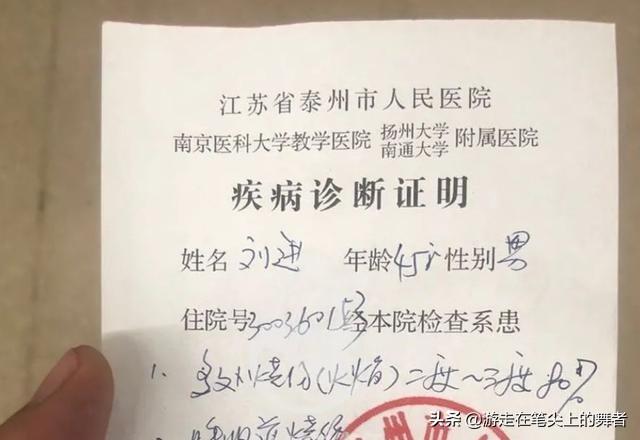 江苏省泰州市人民医院
南京医科大学教学医院 扬州大学 南通大学 附属医院
疾病诊断证明
姓名 刘进 年龄 45岁 性别 男
住院号 经本院检查系患
1. 多处烧伤(火焰)二度~三度 80%
2. 呼吸道烧伤
头条 @游走在笔尖上的舞者